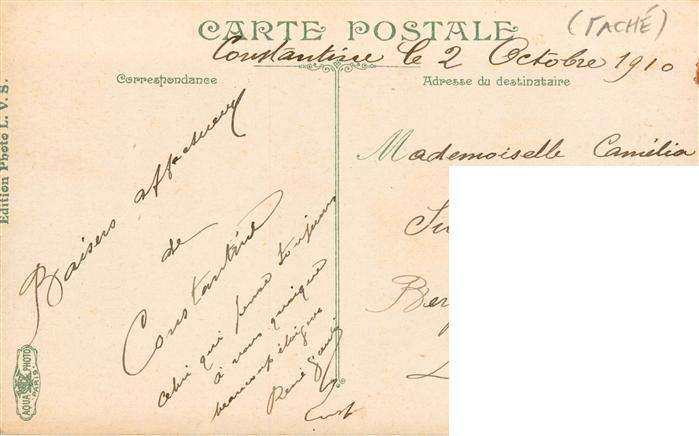 (TACHÉ)
CARTE POSTALE
Constantine le 2 Octobre 1910
Correspondance
Adresse du destinataire
Edition Photo L. V. S.
Baisers affectueux
de
Constantine
celui qui pense toujours
à vous quoique
beaucoup éloigné
René
Mademoiselle Camélia
AQUA PHOTO
PARIS